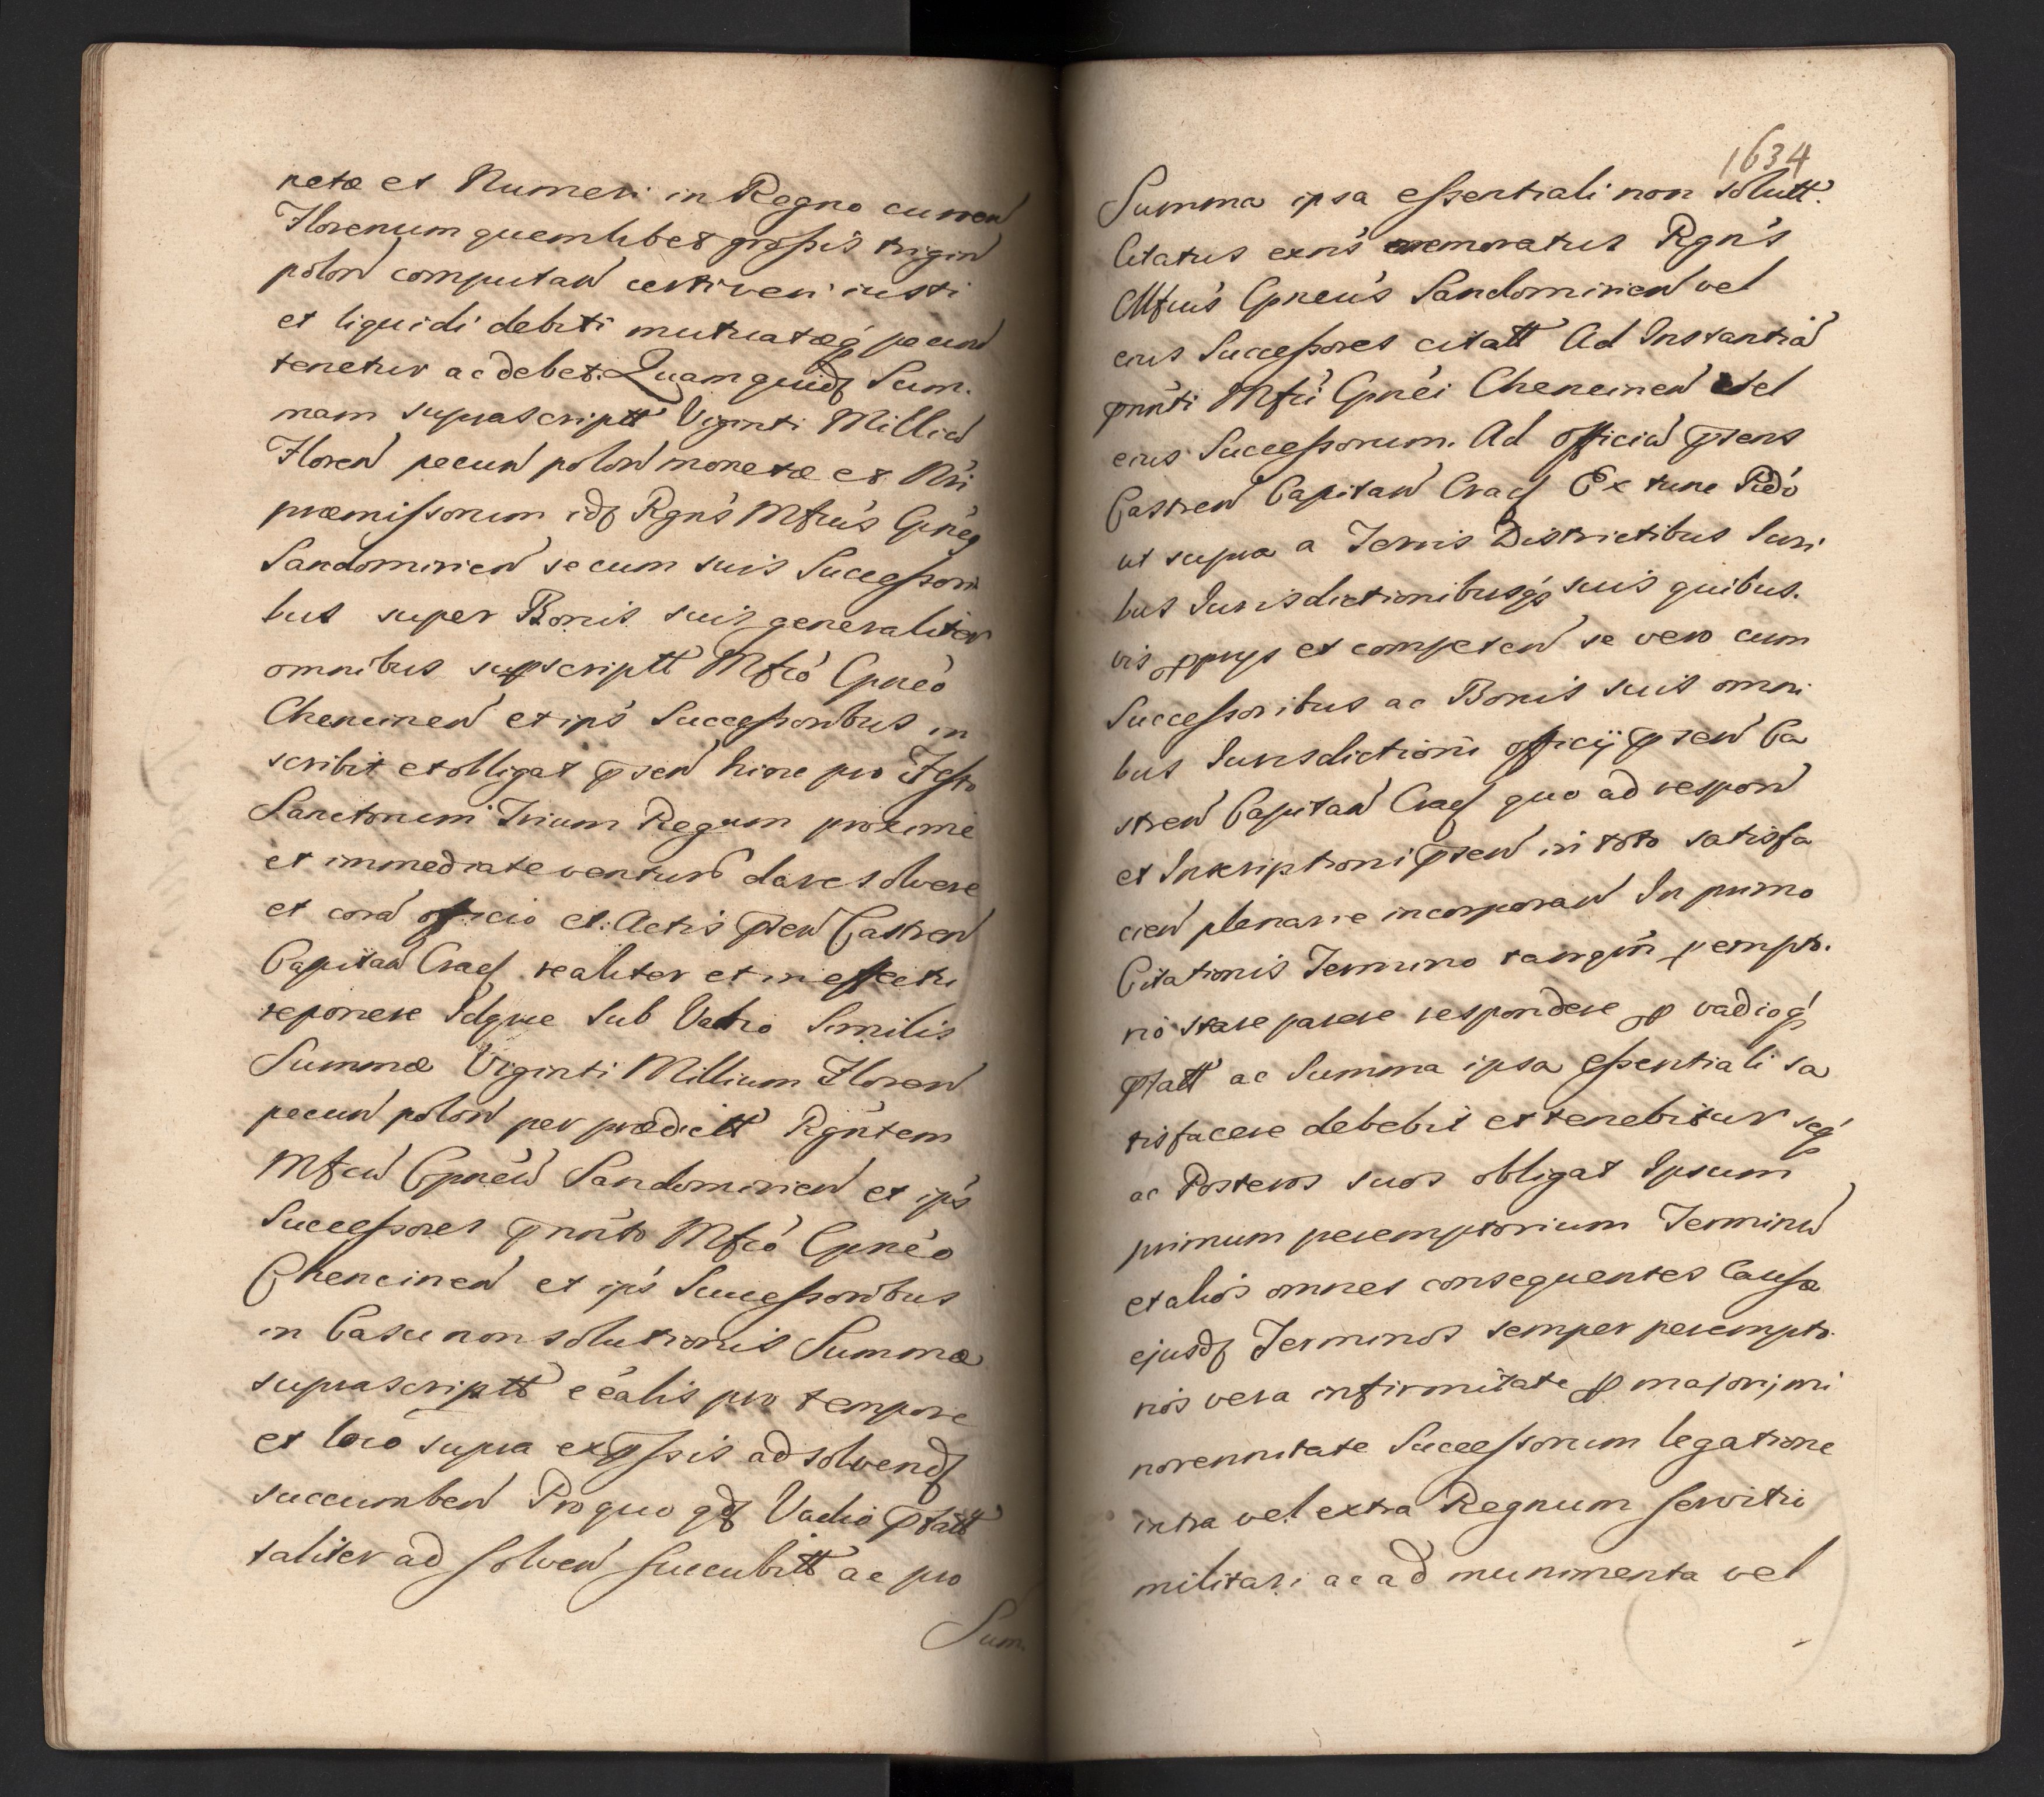 netæ et Numeri in Regno curren
Florenum quemlibet grossis trigin
polon computan certi veri iusti
et liquidi debiti mutuatæq pecun
tenetur ac debet. Quam quidf Sum.
mam suprascriptt Viginti Millia
Floren pecun polon monetæ et Nri
præmissorum idf Rgns Mfcus Gpneg
Sandomirien se cum suis Successori
bus super Bonis suis generaliter
omnibus supscriptt Mfco Gpneo
Chencinen et ips Successoribus in
scribit et obligat psen hinc pro Festo
Sanctorum Trium Regum proxime
et immediate venturo dare solvere
et cora officio et Actis psen Castren
Capitan Cracf realiter et in effectu
reponere Idque Sub Vadio Similis
Summæ Viginti Millium Floren
pecun polon per prædictt Rgntem
Mfcu Gpneu Sandomirien et ips
Successores pnnto Mfco Gpneo
Chencinen et ips Successoribus
in Casu non solutionis Summæ
suprascriptt eealis pro tempore
et loco supra expssis ad solvendf
succumben Pro quo qdf Vadio pfatt
taliter ad solven succubitt ac pro
Sum.
1634
Summa ipsa essentiali non solutt.
Citatus exns memoratus Rgns
Mfcus Gpneus Sandomirien vel
eius Successores citatt Ad Instantia
pnnti Mfci Gpnei Chencinen vel
eius Successorum. Ad officiu psens
Castren Capitan Cracf Ex tunc Rdo
ut supra a Terris Districtibus Juri
bus Jurisdictionibusq suis quibus.
vis pprys et competen se vero cum
Successoribus ac Bonis suis omni
bus Jurisdictioni officij psen Ca
stren Capitan Cracf quo ad respon
et Inscriptioni psen in toto satisfa
cien plenarie incorporan In primo
Citationis Termino tanqm perempto.
rio stare parere respondere p vadioq
pfatt ac Summa ipsa essentiali sa
tisfacere debebit et tenebitur seq
ac Posteros suos obligat Ipsum
primum peremptorium Terminu
et alios omnes consequentes Causæ
ejusdf Terminos semper perempto.
rios vera infirmitate p majori, mi
norennitate Successorum legatione
intra vel extra Regnum servitio
militari ac ad munimenta vel